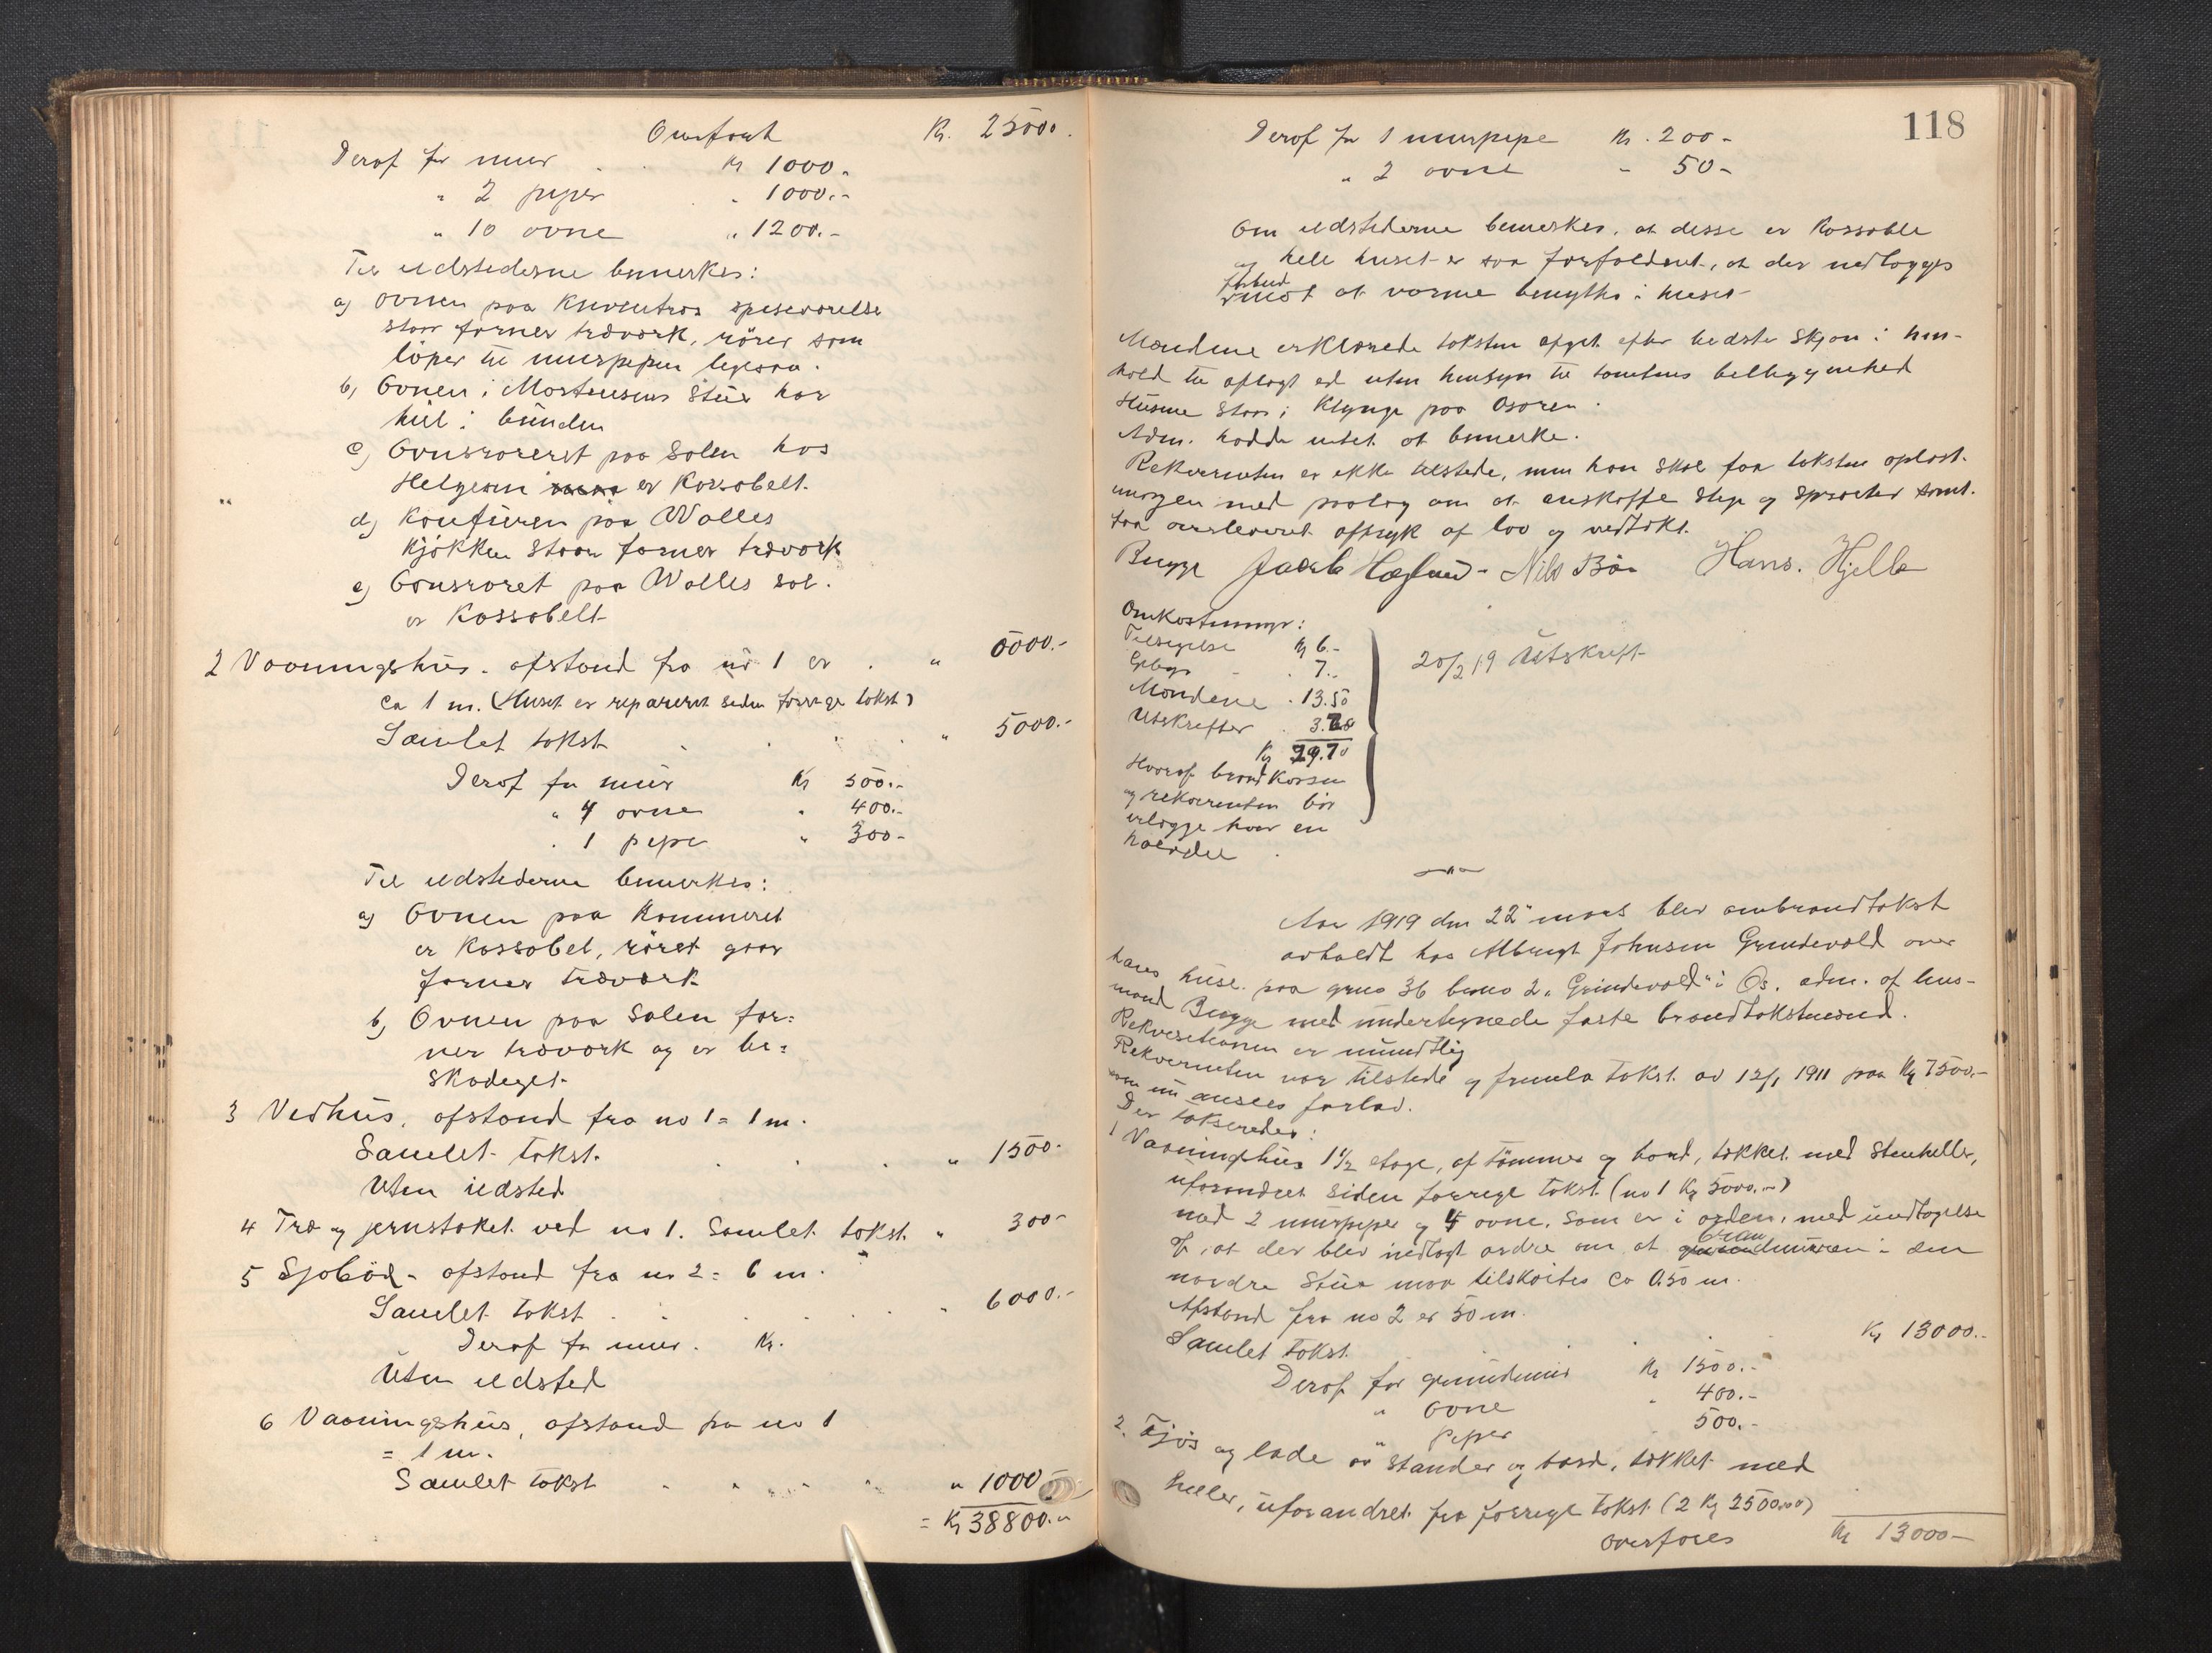 Overført Kr. 25000.
Derof for mur Kr 1000.-
" 2 piper " 1000.-
" 10 ovne " 1200.-
Til ildstederne bemerkes:
a) Ovnen paa spiseværelse
staar fornær træverk, rører som
löper til murpipen ligesaa.
b) Ovnen i Mortensens Stue har
hul i bunden
c) Ovnsröret paa Salen hos
Helgesen er Kassabelt.
d) Komfuren paa Wolles
Kjøkken Staar fornær træverk
e) Ovnsroret paa Wolles sal.
er Kassabelt
2 Vaaningshus. afstand fra no 1 er . " 5000.-
ca 1 m. (Huset er reparert siden forrige takst)
Samlet takst " 5000.-
Derof for mur Kr 500.-
" 4 ovne " 400.-
" 1 pipe " 300-
Til ildstederne bemerkes:
a) Ovnen paa Kammeret
er Kassabel, röret gaar
fornær træverk
b) Ovnen paa Salen for=
nær træverk og er be=
skadiget
3 Vedhus, afstand fra no 1 = 1 m.
Samlet takst. " 1500-
Uten ildsted
4 Træ og jernstaket ved no 1. Samlet takst. " 300-
5 Sjøbod - afstand fra no 2 = 6 m.
Samlet takst " 6000.-
Derof for mur. Kr.
Uten ildsted
6 Vaaningshus, afstand fra no 1
= 1 m.
Samlet takst " 1000
= Kr 38800.-
118
Derof for 1 murpipe Kr. 200-
" 2 ovne " 50-
Om ildstederne bemerkes, at desse er Kassable
og hele huset er saa forfaldent, at der nedlægges
forbud
mot at varme benyttes i huset
Mændene erklærede taksten afgit efter bedste Skjøn i hen-
hold til aflagt ed uten hensyn til tomtens beliggenhed
Husene staar i Klynge paa Osøren.
Adm. hadde intet at bemerke.
Rekvirenten er ikke tilstede, men han skal faa taksten oplæst.
morgen med paalæg om at anskaffe Stige og Sprøiter samt.
faa overleveret aftryk af lov og vedtækt.
Bugge Jacob Hæglund - Nils Bö Hans. Hjelle
Omkostninger:
Tilsigelse Kr 6.-
7.-
Mændene . 13.50
Utskrifter . 3.20
Kr 29.70
Hvoraf brandkassen
og rekvirenten bör
utlægge hver en
halvdel
20/2 19 Utskrift
Aar 1919 den 22' mars blev ombrandtakst
avholdt hos Albrigt Johnsen Grindevold over
hans huse. paa gno 36 bno 2 "Grindevold" i Os. adm. af lens-
mand Bugge med undertegnede faste brandtakstmænd.
Rekvisitionen er mundtlig
Rekvirenten var tilstede og fremla takst. av 12/1 1911 paa Kr 7500.-
som nu ansees for lav.
Der takseredes:
1 Vaaningshus 1 1/2 etage, af tömmer og bord, tækket. med Stenheller,
uforandret siden forrige takst. (no 1 Kr 5000.-)
med 2 murpiper og 4 ovne, som er i orden, med undtagelse
af, at der blev nedlagt ordre om at muren i den
nordre Stue maa tilskötes ca 0.50 m.
Afstand fra no 2 er 50 m.
Samlet takst. Kr 13000.-
Derof for grundmur Kr 1500.-
" Ovne " 400.-
" Piper 500.-
2. Fjös og lade av Stander og bord, tækket med
heller, uforandret fra forrige takst (2 Kr 2500.00)
overføres Kr 13000-